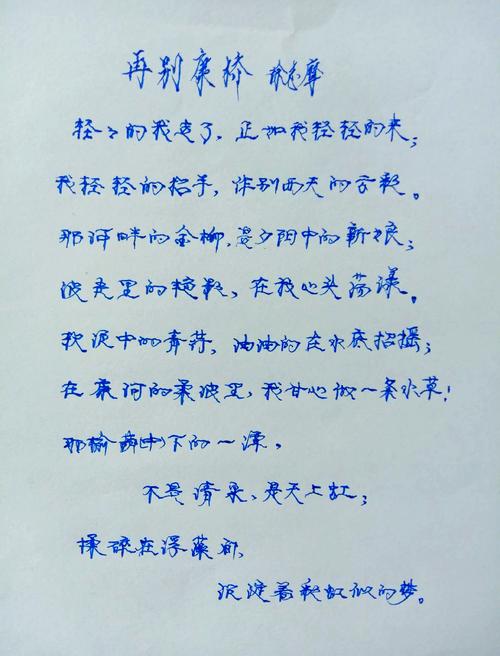 再别康桥 徐志摩
轻々的我走了，正如我轻轻的来；
我轻轻的招手，作别西天的云彩。
那河畔的金柳，是夕阳中的新娘；
波光里的艳影，在我心头荡漾。
软泥中的青荇，油油的在水底招摇；
在康河的柔波里，我甘心做一条水草！
那榆荫下的一潭，
不是清泉，是天上虹；
揉碎在浮藻间，
沉淀着彩虹似的梦。